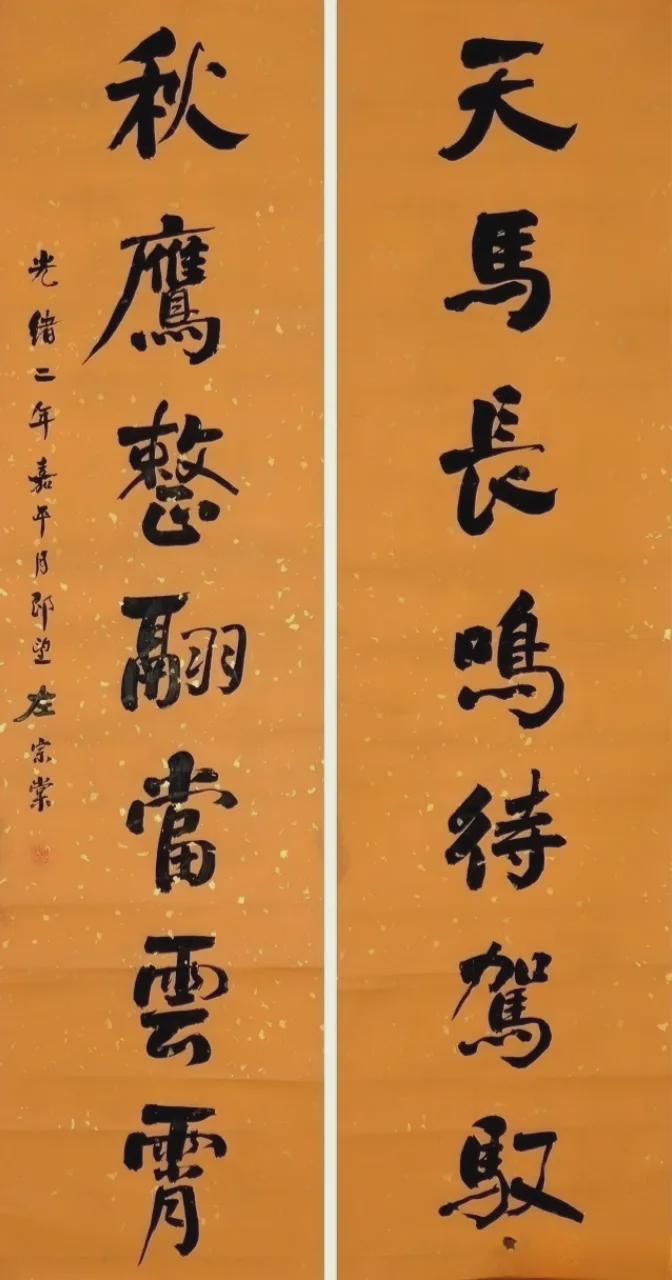 天馬長鳴待駕馭
秋鷹整翮當雲霄
光緒二年嘉平月即望左宗棠